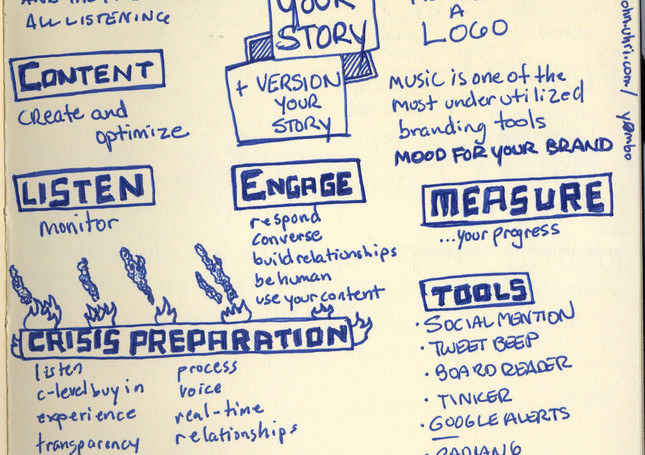 ALL LISTENING
CONTENT
create and
optimize
YOUR
STORY
+ VERSION
YOUR
STORY
A
LOGO
MUSIC is one of the
most underutilized
branding tools
MOOD FOR YOUR BRAND
LISTEN
monitor
ENGAGE
respond
converse
build relationships
be human
use your content
MEASURE
...your progress
CRISIS PREPARATION
listen
c-level buy in
experience
transparency
process
voice
real-time
relationships
TOOLS
· SOCIAL MENTION
· TWEET BEEP
· BOARD READER
· TINKER
· GOOGLE ALERTS